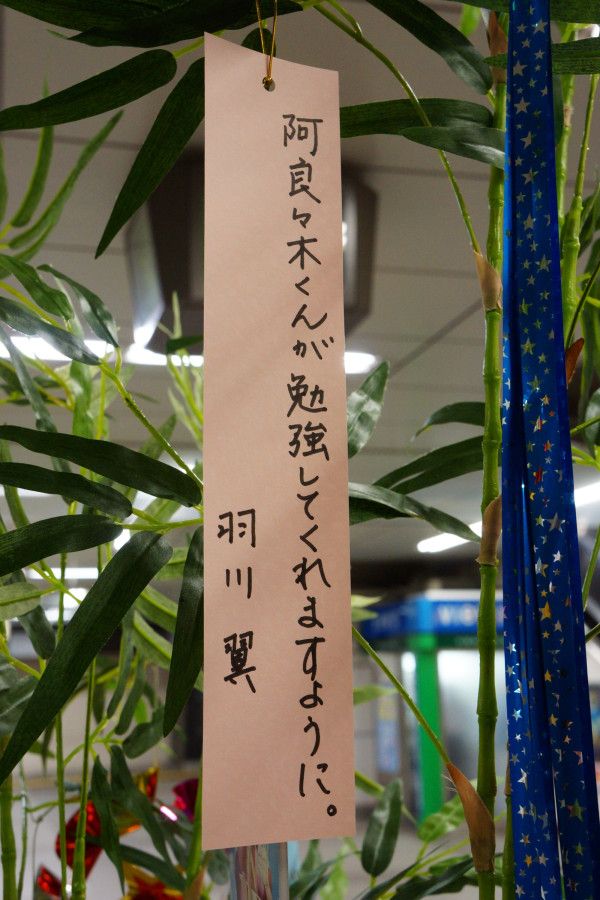 阿良々木くんが勉強してくれますように。
羽川翼